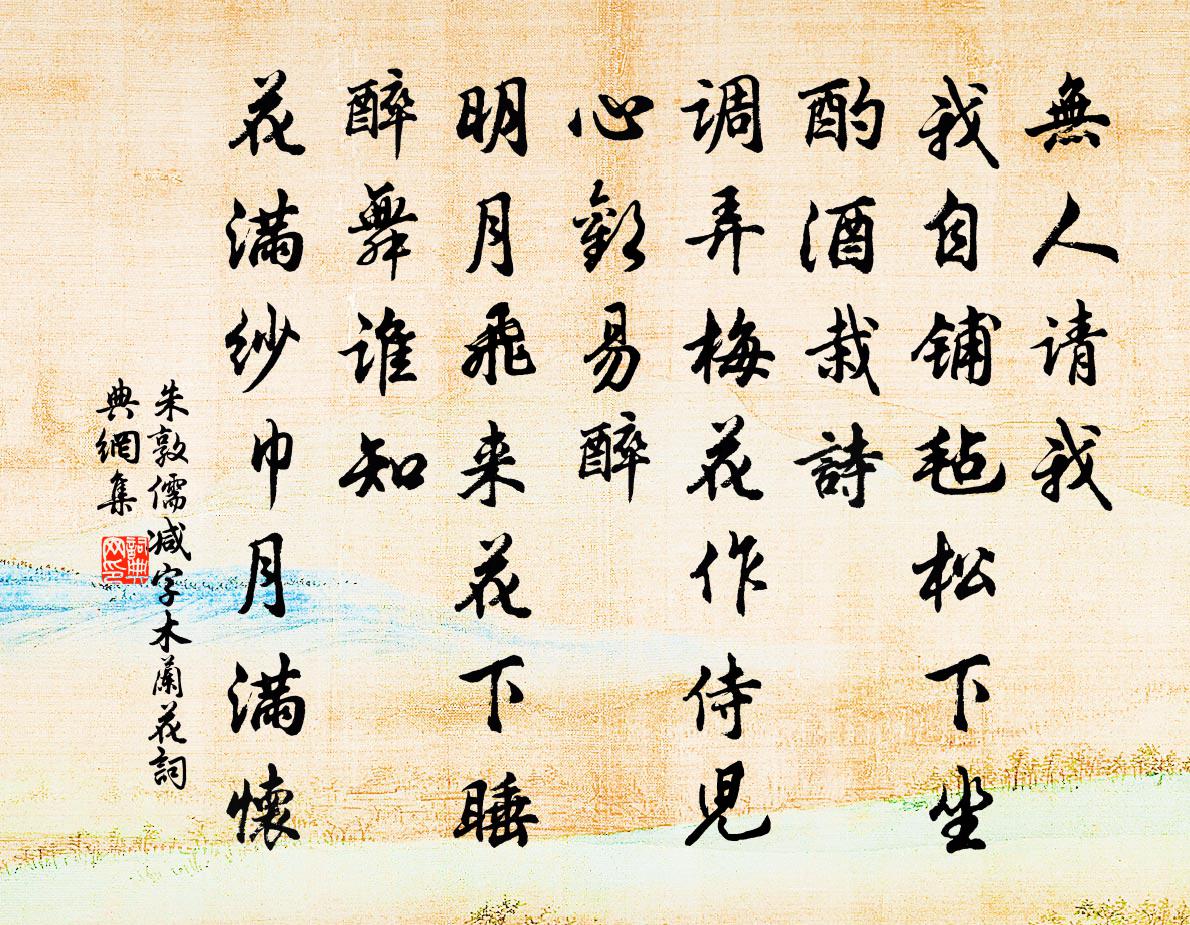 無人请我
我自铺毡松下坐
酌酒栽詩
调弄梅花作侍兒
心歡易醉
明月飛来花下睡
醉舞谁知
花滿紗巾月滿懷
朱敦儒减字木蘭花詞
典網集
詞典网印